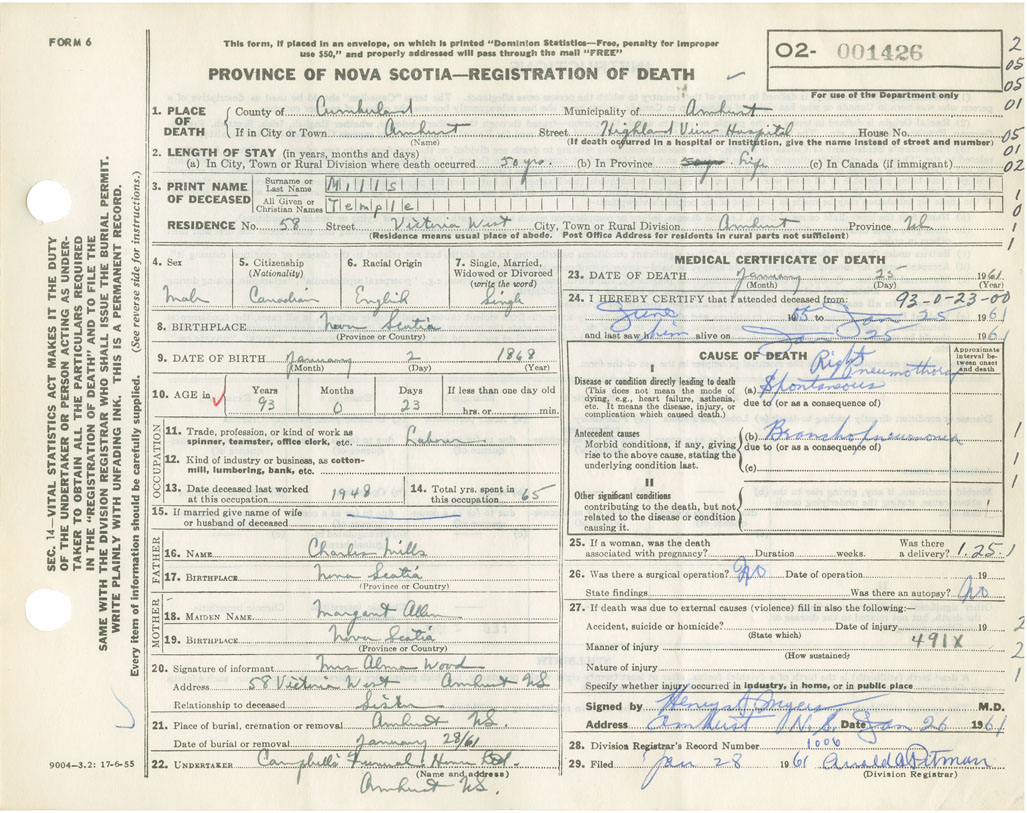 FORM 6
This form, if placed in an envelope, on which is printed "Dominion Statistics—Free, penalty for improper
use $50," and properly addressed will pass through the mail "FREE"
O2- 001426
For use of the Department only
PROVINCE OF NOVA SCOTIA—REGISTRATION OF DEATH
2
05
05
01
05
01
02
1
0
1
1. PLACE OF DEATH
County of Cumberland Municipality of Amherst
If in City or Town Amherst Street Highland View Hospital House No.
(Name) (If death occurred in a hospital or institution, give the name instead of street and number)
2. LENGTH OF STAY (in years, months and days)
(a) In City, Town or Rural Division where death occurred 50 yrs. (b) In Province Life (c) In Canada (if immigrant)
3. PRINT NAME OF DECEASED
Surname or Last Name Mills
All Given or Christian Names Temple
RESIDENCE No. 58 Street Victoria West City, Town or Rural Division Amherst Province NS
(Residence means usual place of abode. Post Office Address for residents in rural parts not sufficient)
4. Sex
Male
5. Citizenship
(Nationality)
Canadian
6. Racial Origin
English
7. Single, Married,
Widowed or Divorced
(write the word)
Single
8. BIRTHPLACE Nova Scotia
(Province or Country)
9. DATE OF BIRTH January 2 1868
(Month) (Day) (Year)
10. AGE in
Years Months Days If less than one day old
93 0 23 hrs. or min.
OCCUPATION
11. Trade, profession, or kind of work as
spinner, teamster, office clerk, etc. Laborer
12. Kind of industry or business, as cotton-
mill, lumbering, bank, etc.
13. Date deceased last worked
at this occupation 1948
14. Total yrs. spent in
this occupation 65
15. If married give name of wife
or husband of deceased
FATHER
16. NAME Charles Mills
17. BIRTHPLACE Nova Scotia
(Province or Country)
MOTHER
18. MAIDEN NAME Margaret Allen
19. BIRTHPLACE Nova Scotia
(Province or Country)
20. Signature of informant Mrs Alma Wood
Address 58 Victoria West Amherst NS
Relationship to deceased Sister
21. Place of burial, cremation or removal Amherst NS.
Date of burial or removal January 28/61
22. UNDERTAKER Campbells Funeral Home
(Name and address)
Amherst NS.
9004—3.2: 17-6-55
MEDICAL CERTIFICATE OF DEATH
23. DATE OF DEATH January 25 1961
(Month) (Day)
24. I HEREBY CERTIFY that I attended deceased from: 93-0-23-00
June to Jan 25 1961
and last saw him alive on Jan 25 1961
CAUSE OF DEATH
Approximate
interval be-
tween onset
and death
I
Disease or condition directly leading to death
(This does not mean the mode of
dying, e.g., heart failure, asthenia,
etc. It means the disease, injury, or
complication which caused death.)
Right Pneumothorax
(a) Spontaneous
due to (or as a consequence of)
Antecedent causes
Morbid conditions, if any, giving
rise to the above cause, stating the
underlying condition last.
(b) Bronchopneumonia
due to (or as a consequence of)
(c)
II
Other significant conditions
contributing to the death, but not
related to the disease or condition
causing it.
1
1
1
1
25. If a woman, was the death
associated with pregnancy? Duration weeks.
Was there
a delivery? 1.25.1
26. Was there a surgical operation? No Date of operation 19
State findings Was there an autopsy? No
27. If death was due to external causes (violence) fill in also the following:—
Accident, suicide or homicide? Date of injury 19
(State which)
Manner of injury 491X
(How sustained)
Nature of injury
Specify whether injury occurred in industry, in home, or in public place
2
2
1
Signed by M.D.
Address Amherst N.S. Date Jan 26 1961
28. Division Registrar's Record Number 1006
29. Filed Jan 28 1961 Arnold A Pitman
(Division Registrar)
SEC. 14—VITAL STATISTICS ACT MAKES IT THE DUTY
OF THE UNDERTAKER OR PERSON ACTING AS UNDER-
TAKER TO OBTAIN ALL THE PARTICULARS REQUIRED
IN THE "REGISTRATION OF DEATH" AND TO FILE THE
SAME WITH THE DIVISION REGISTRAR WHO SHALL ISSUE THE BURIAL PERMIT.
WRITE PLAINLY WITH UNFADING INK. THIS IS A PERMANENT RECORD.
Every item of information should be carefully supplied. (See reverse side for instructions.)